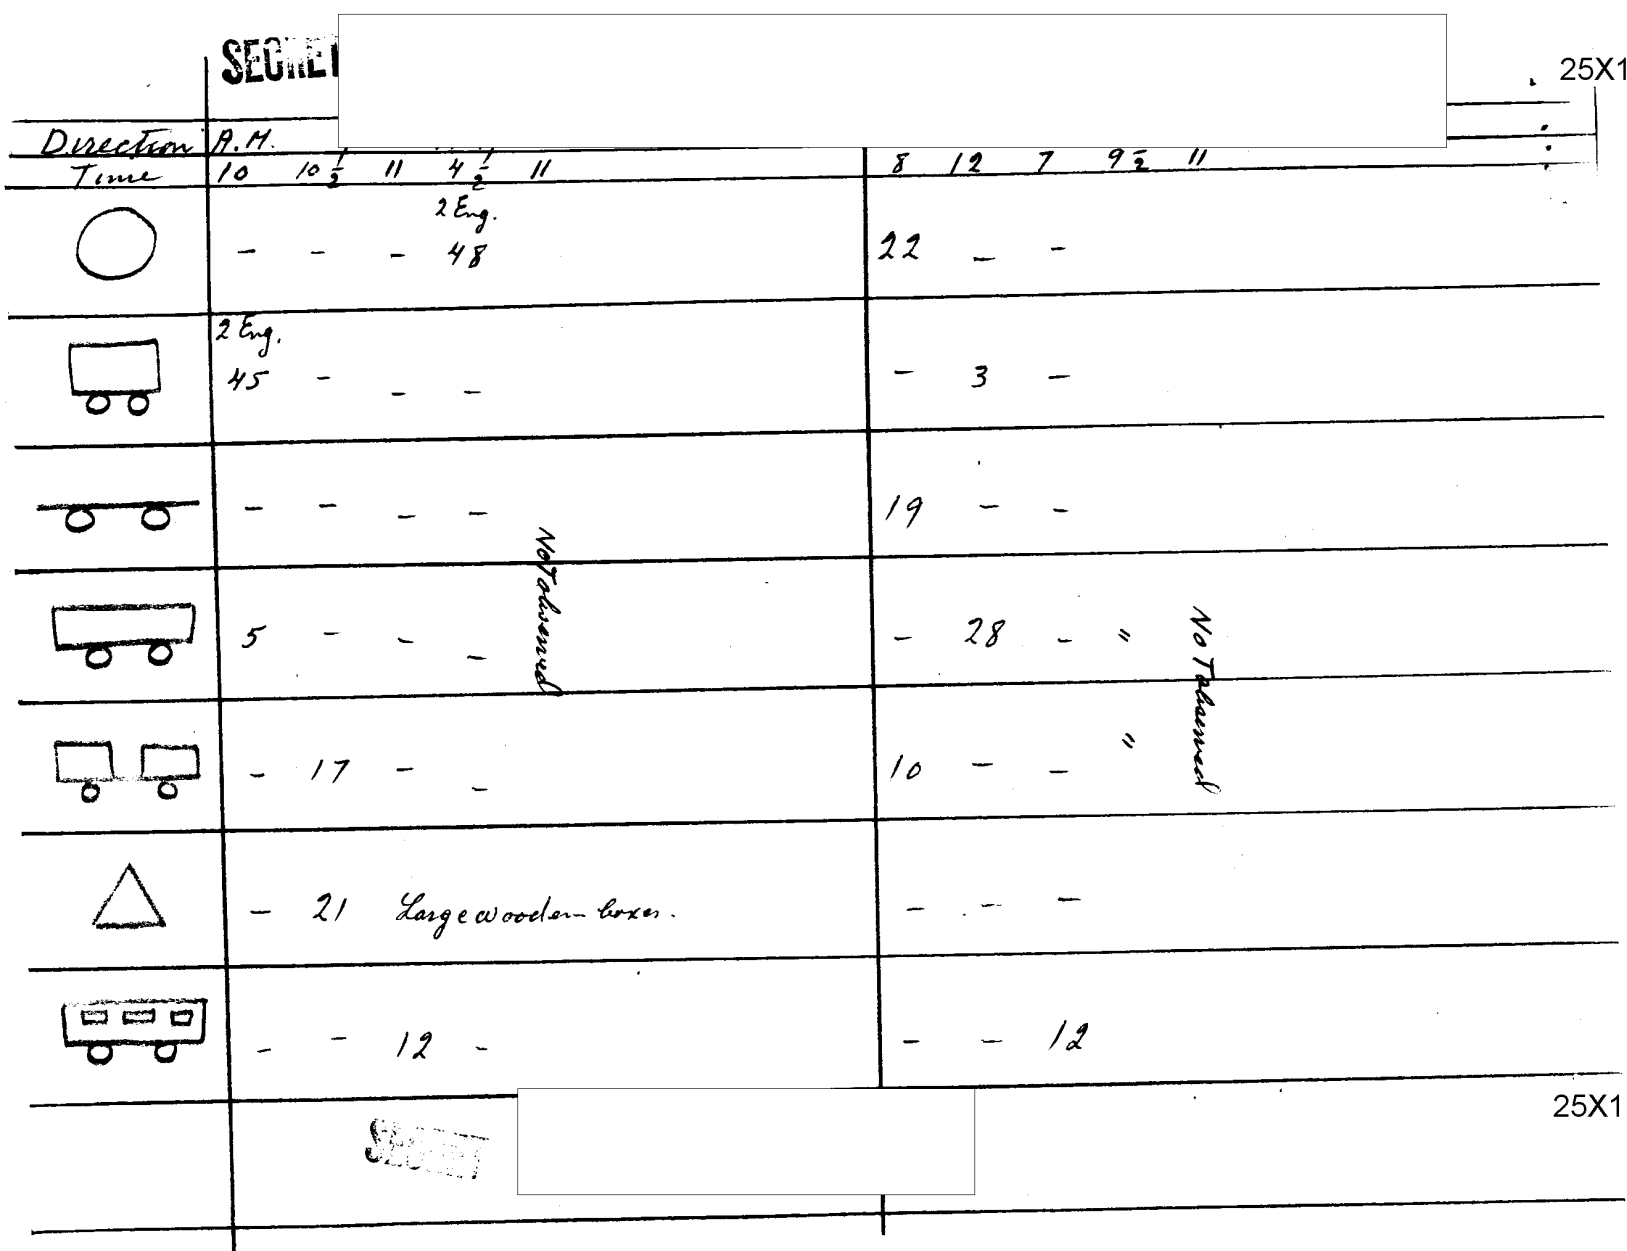 SECRET
25X1
Direction A.M.
Time 10 10 1/2 11 4 1/2 11 8 12 7 9 1/2 11
2 Eng.
- - - 48 22 - -
2 Eng.
45 - - - - 3 -
- - - - 19 - -
Not observed
5 - - - - 28 - "
Not observed
- 17 - - 10 - - "
- 21 Large wooden boxes. - - -
- - 12 - - - 12
25X1
SECRET